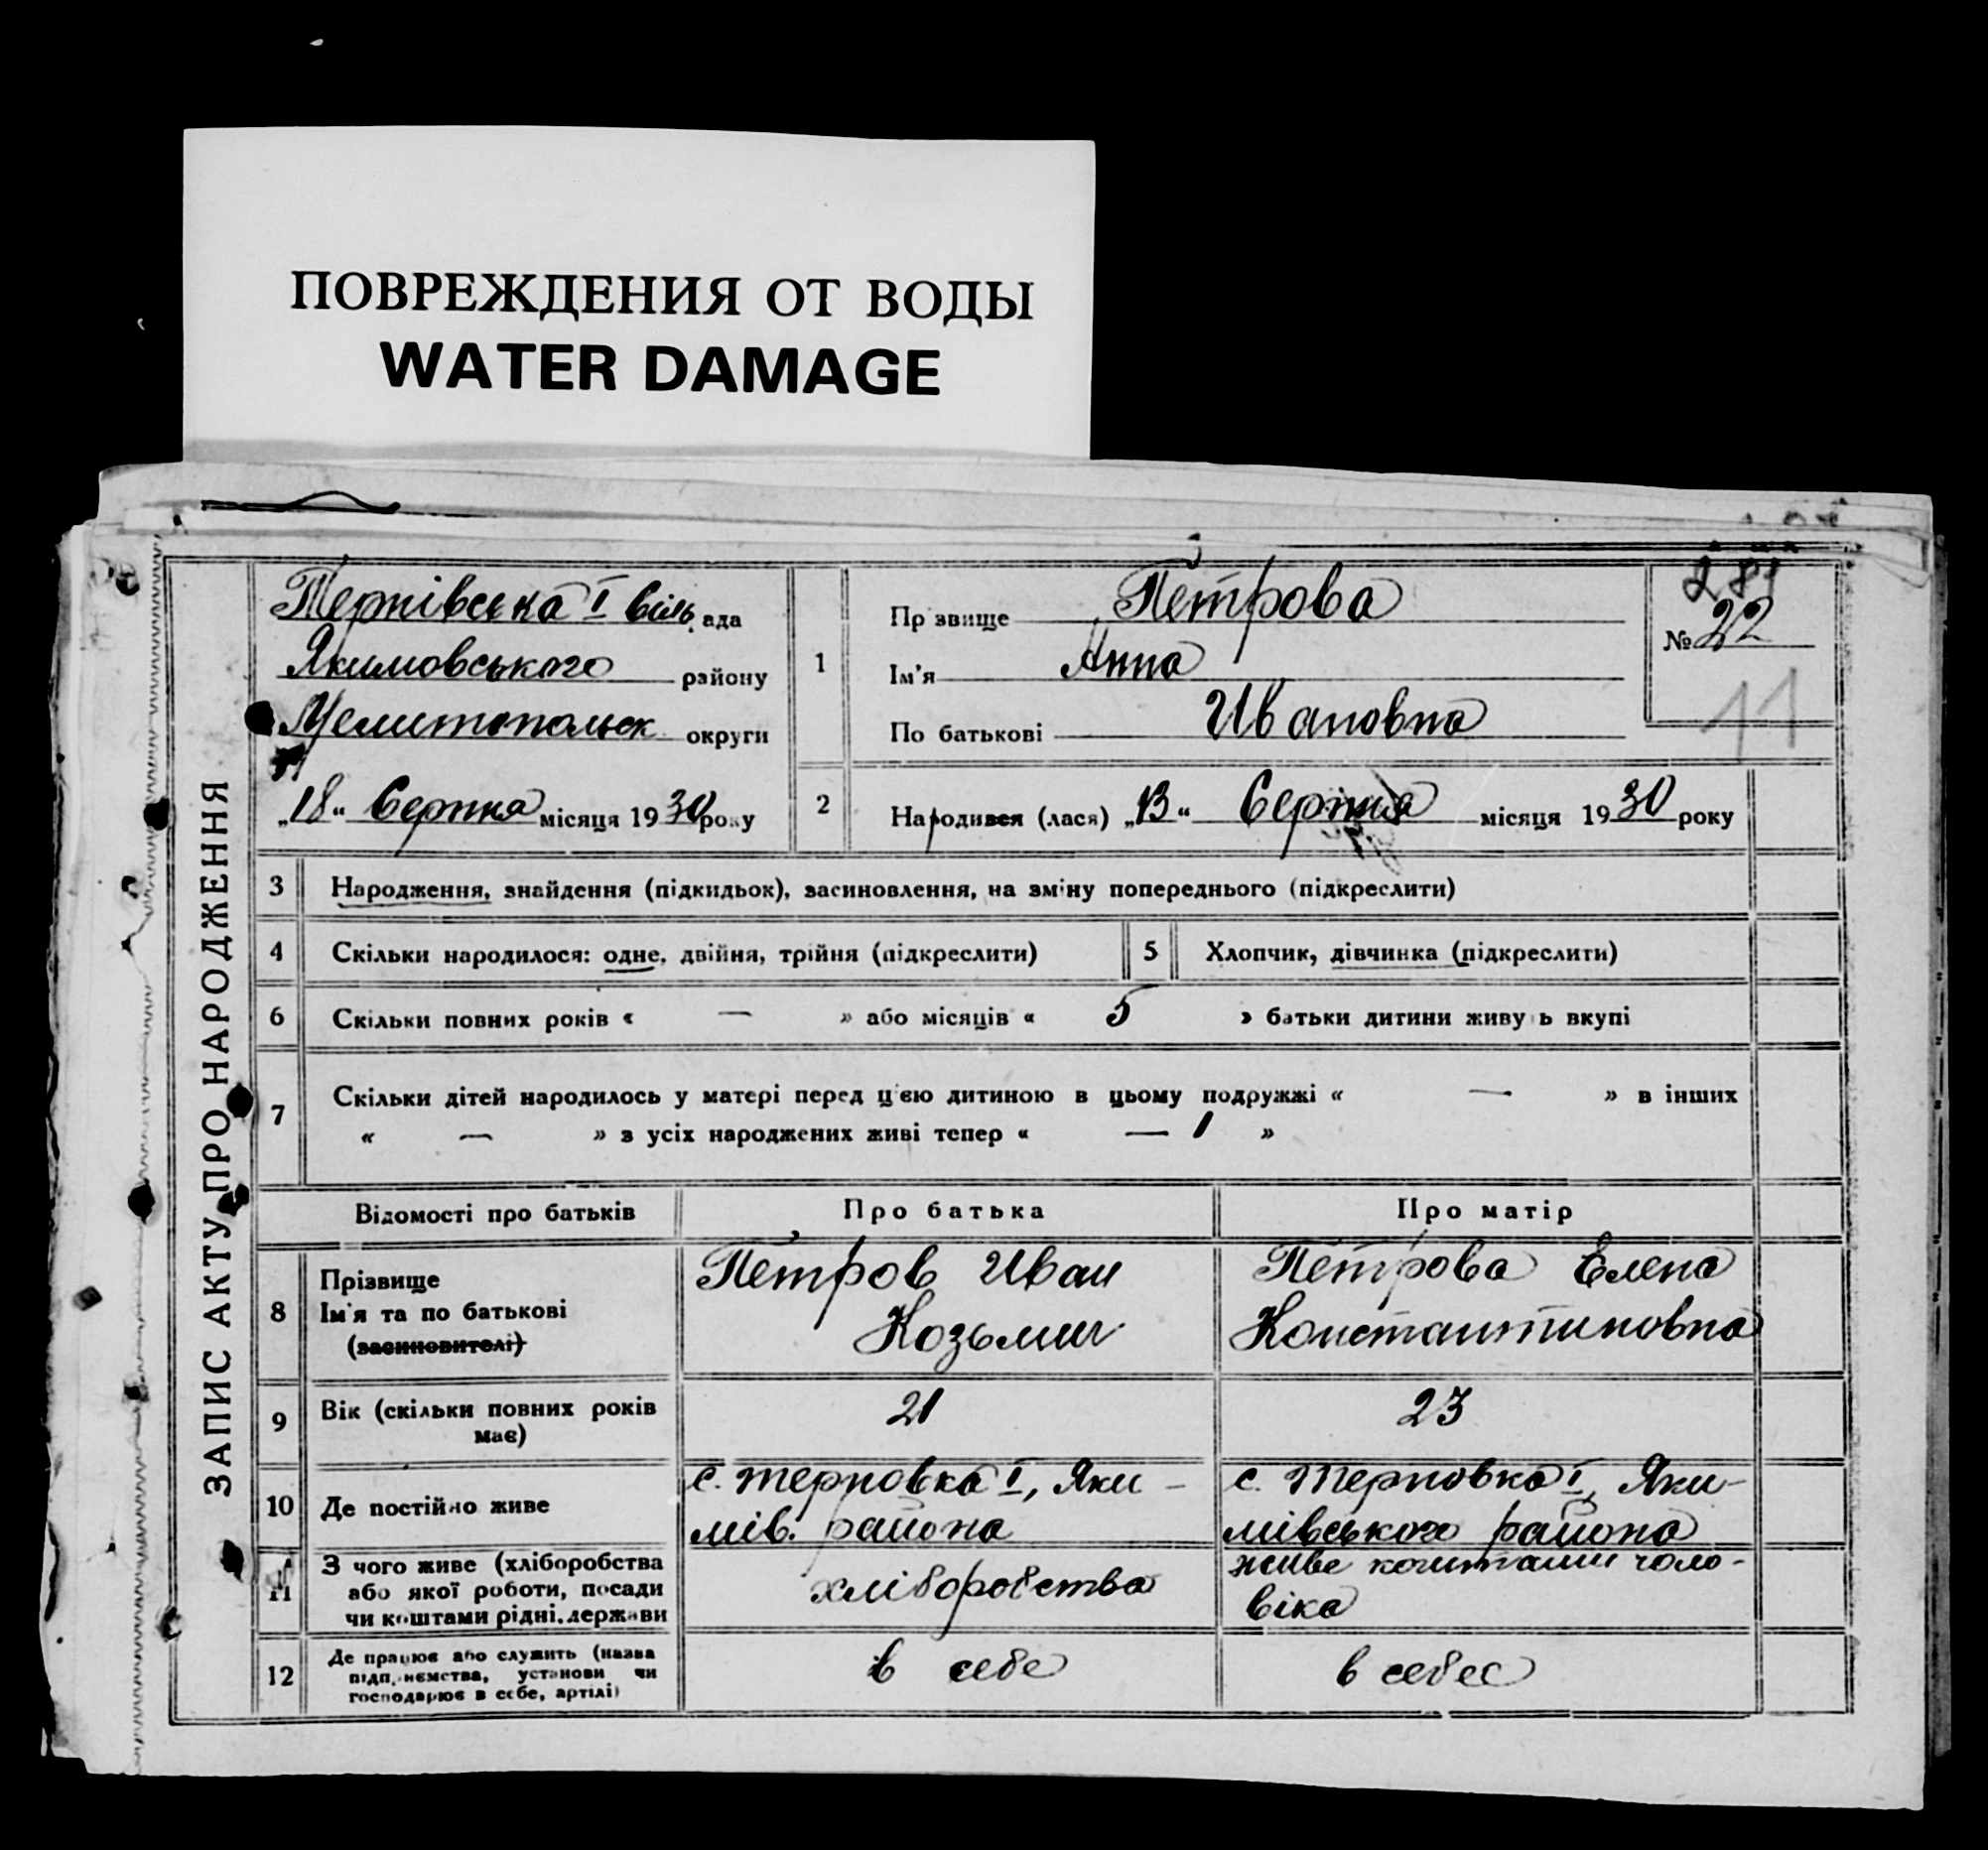 ПОВРЕЖДЕНИЯ ОТ ВОДЫ
WATER DAMAGE
ЗАПИС АКТУ ПРО НАРОДЖЕННЯ
Тернівська I сіль ада
Якимовського району
Мелитопольск округи
„18" Серпня місяця 1930 року
1
Пр звище Петрова
Ім'я Анна
По батькові Ивановна
281
№ 22
11
2 Народився (лася) „13" Серпня місяця 1930 року
3 Народження, знайдення (підкидьок), засиновлення, на зміну попереднього (підкреслити)
4 Скільки народилося: одне, двійня, трійня (підкреслити) 5 Хлопчик, дівчинка (підкреслити)
6 Скільки повних років « — » або місяців « 5 » батьки дитини живу ь вкупі
7 Скільки дітей народилось у матері перед ц'єю дитиною в цьому подружжі « — » в інших
« — » з усіх народжених живі тепер « — 1 »
Відомості про батьків Про батька Про матір
8 Прізвище
Ім'я та по батькові
(засиновителі)
Петров Иван
Козьмич
Петрова Елена
Константиновна
9 Вік (скільки повних років
має)
21
23
10 Де постійно живе
с. Терновка I, Яки-
мів. района
с. Терновка I, Яки-
мівського района
11 З чого живе (хліборобства
або якої роботи, посади
чи коштами рідні, держави
хліборобства
живе коштами чоло-
віка
12 Де працює або служить (назва
підп.иємства, установи чи
господарює в себе, артілі)
в себе
в себес